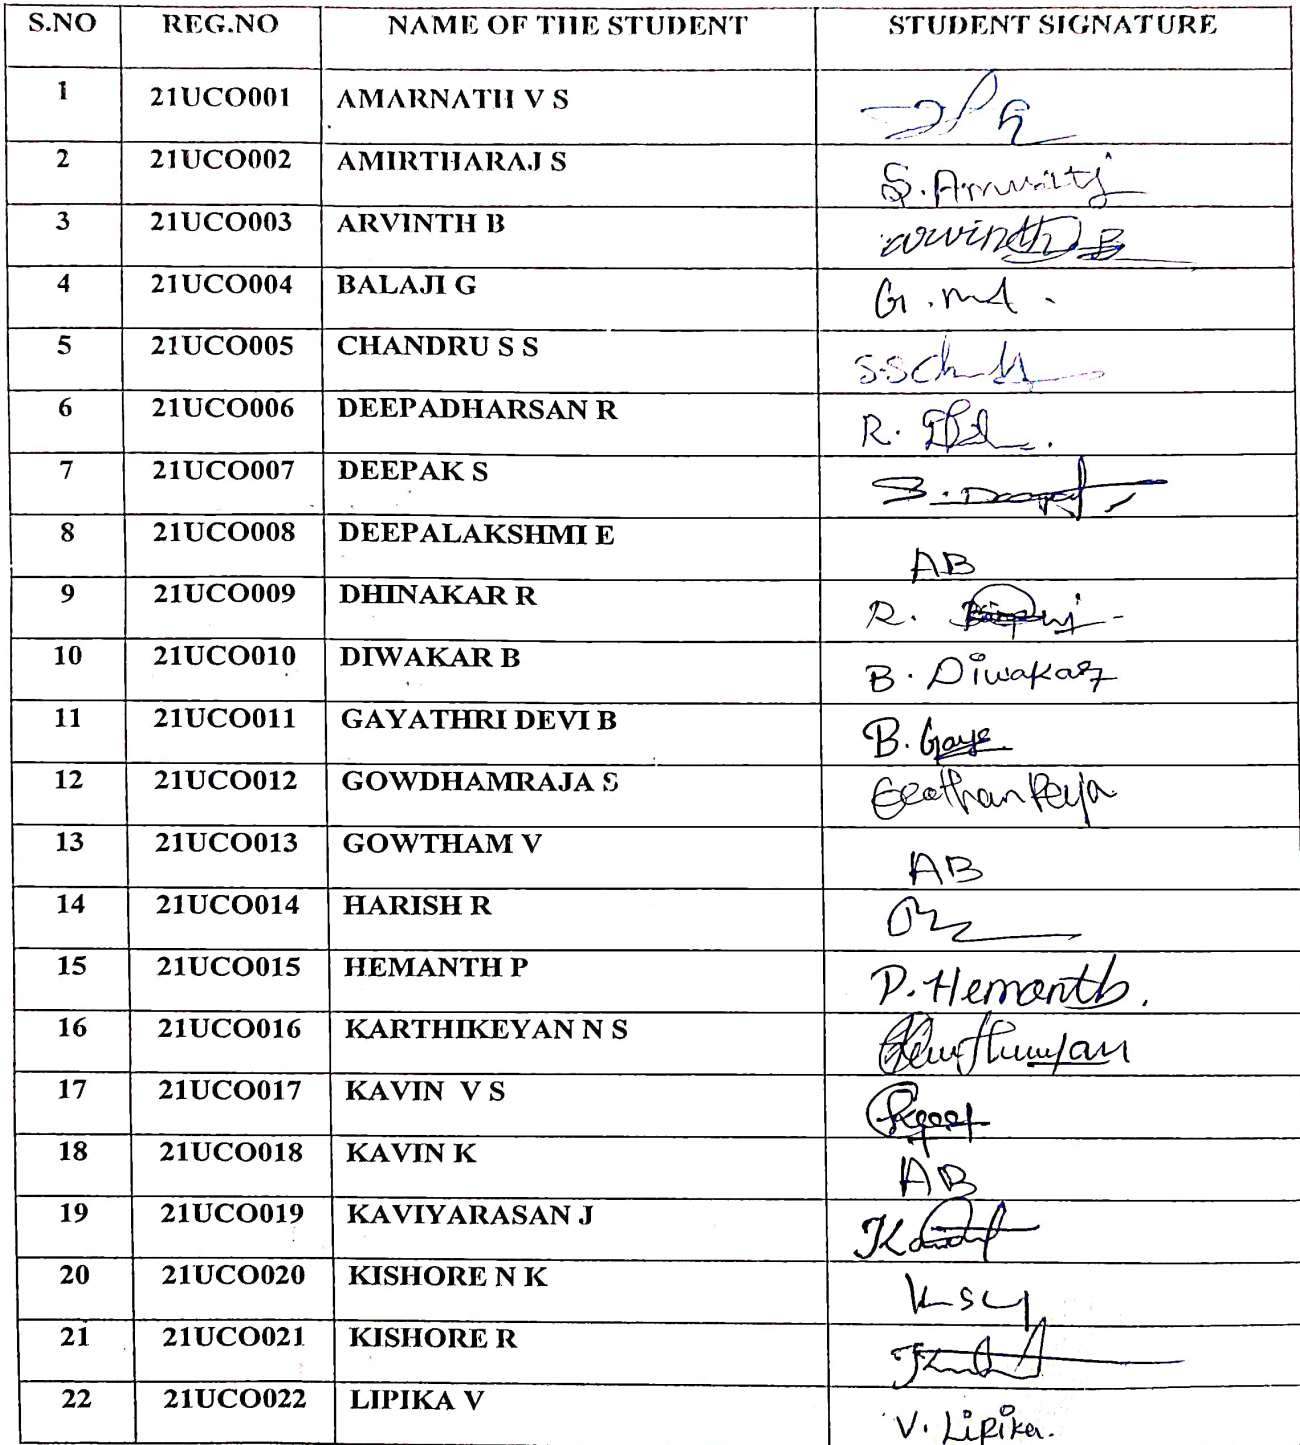 S.NO REG.NO NAME OF THE STUDENT STUDENT SIGNATURE
1 21UCO001 AMARNATH V S
2 21UCO002 AMIRTHARAJ S S.
3 21UCO003 ARVINTH B arvinth B
4 21UCO004 BALAJI G G.
5 21UCO005 CHANDRU S S S.S
6 21UCO006 DEEPADHARSAN R R.
7 21UCO007 DEEPAK S S.
8 21UCO008 DEEPALAKSHMI E AB
9 21UCO009 DHINAKAR R R.
10 21UCO010 DIWAKAR B B. Diwakar
11 21UCO011 GAYATHRI DEVI B B.
12 21UCO012 GOWDHAMRAJA S
13 21UCO013 GOWTHAM V AB
14 21UCO014 HARISH R
15 21UCO015 HEMANTH P P. Hemanth.
16 21UCO016 KARTHIKEYAN N S
17 21UCO017 KAVIN V S
18 21UCO018 KAVIN K AB
19 21UCO019 KAVIYARASAN J
20 21UCO020 KISHORE N K
21 21UCO021 KISHORE R
22 21UCO022 LIPIKA V V. Lipika.